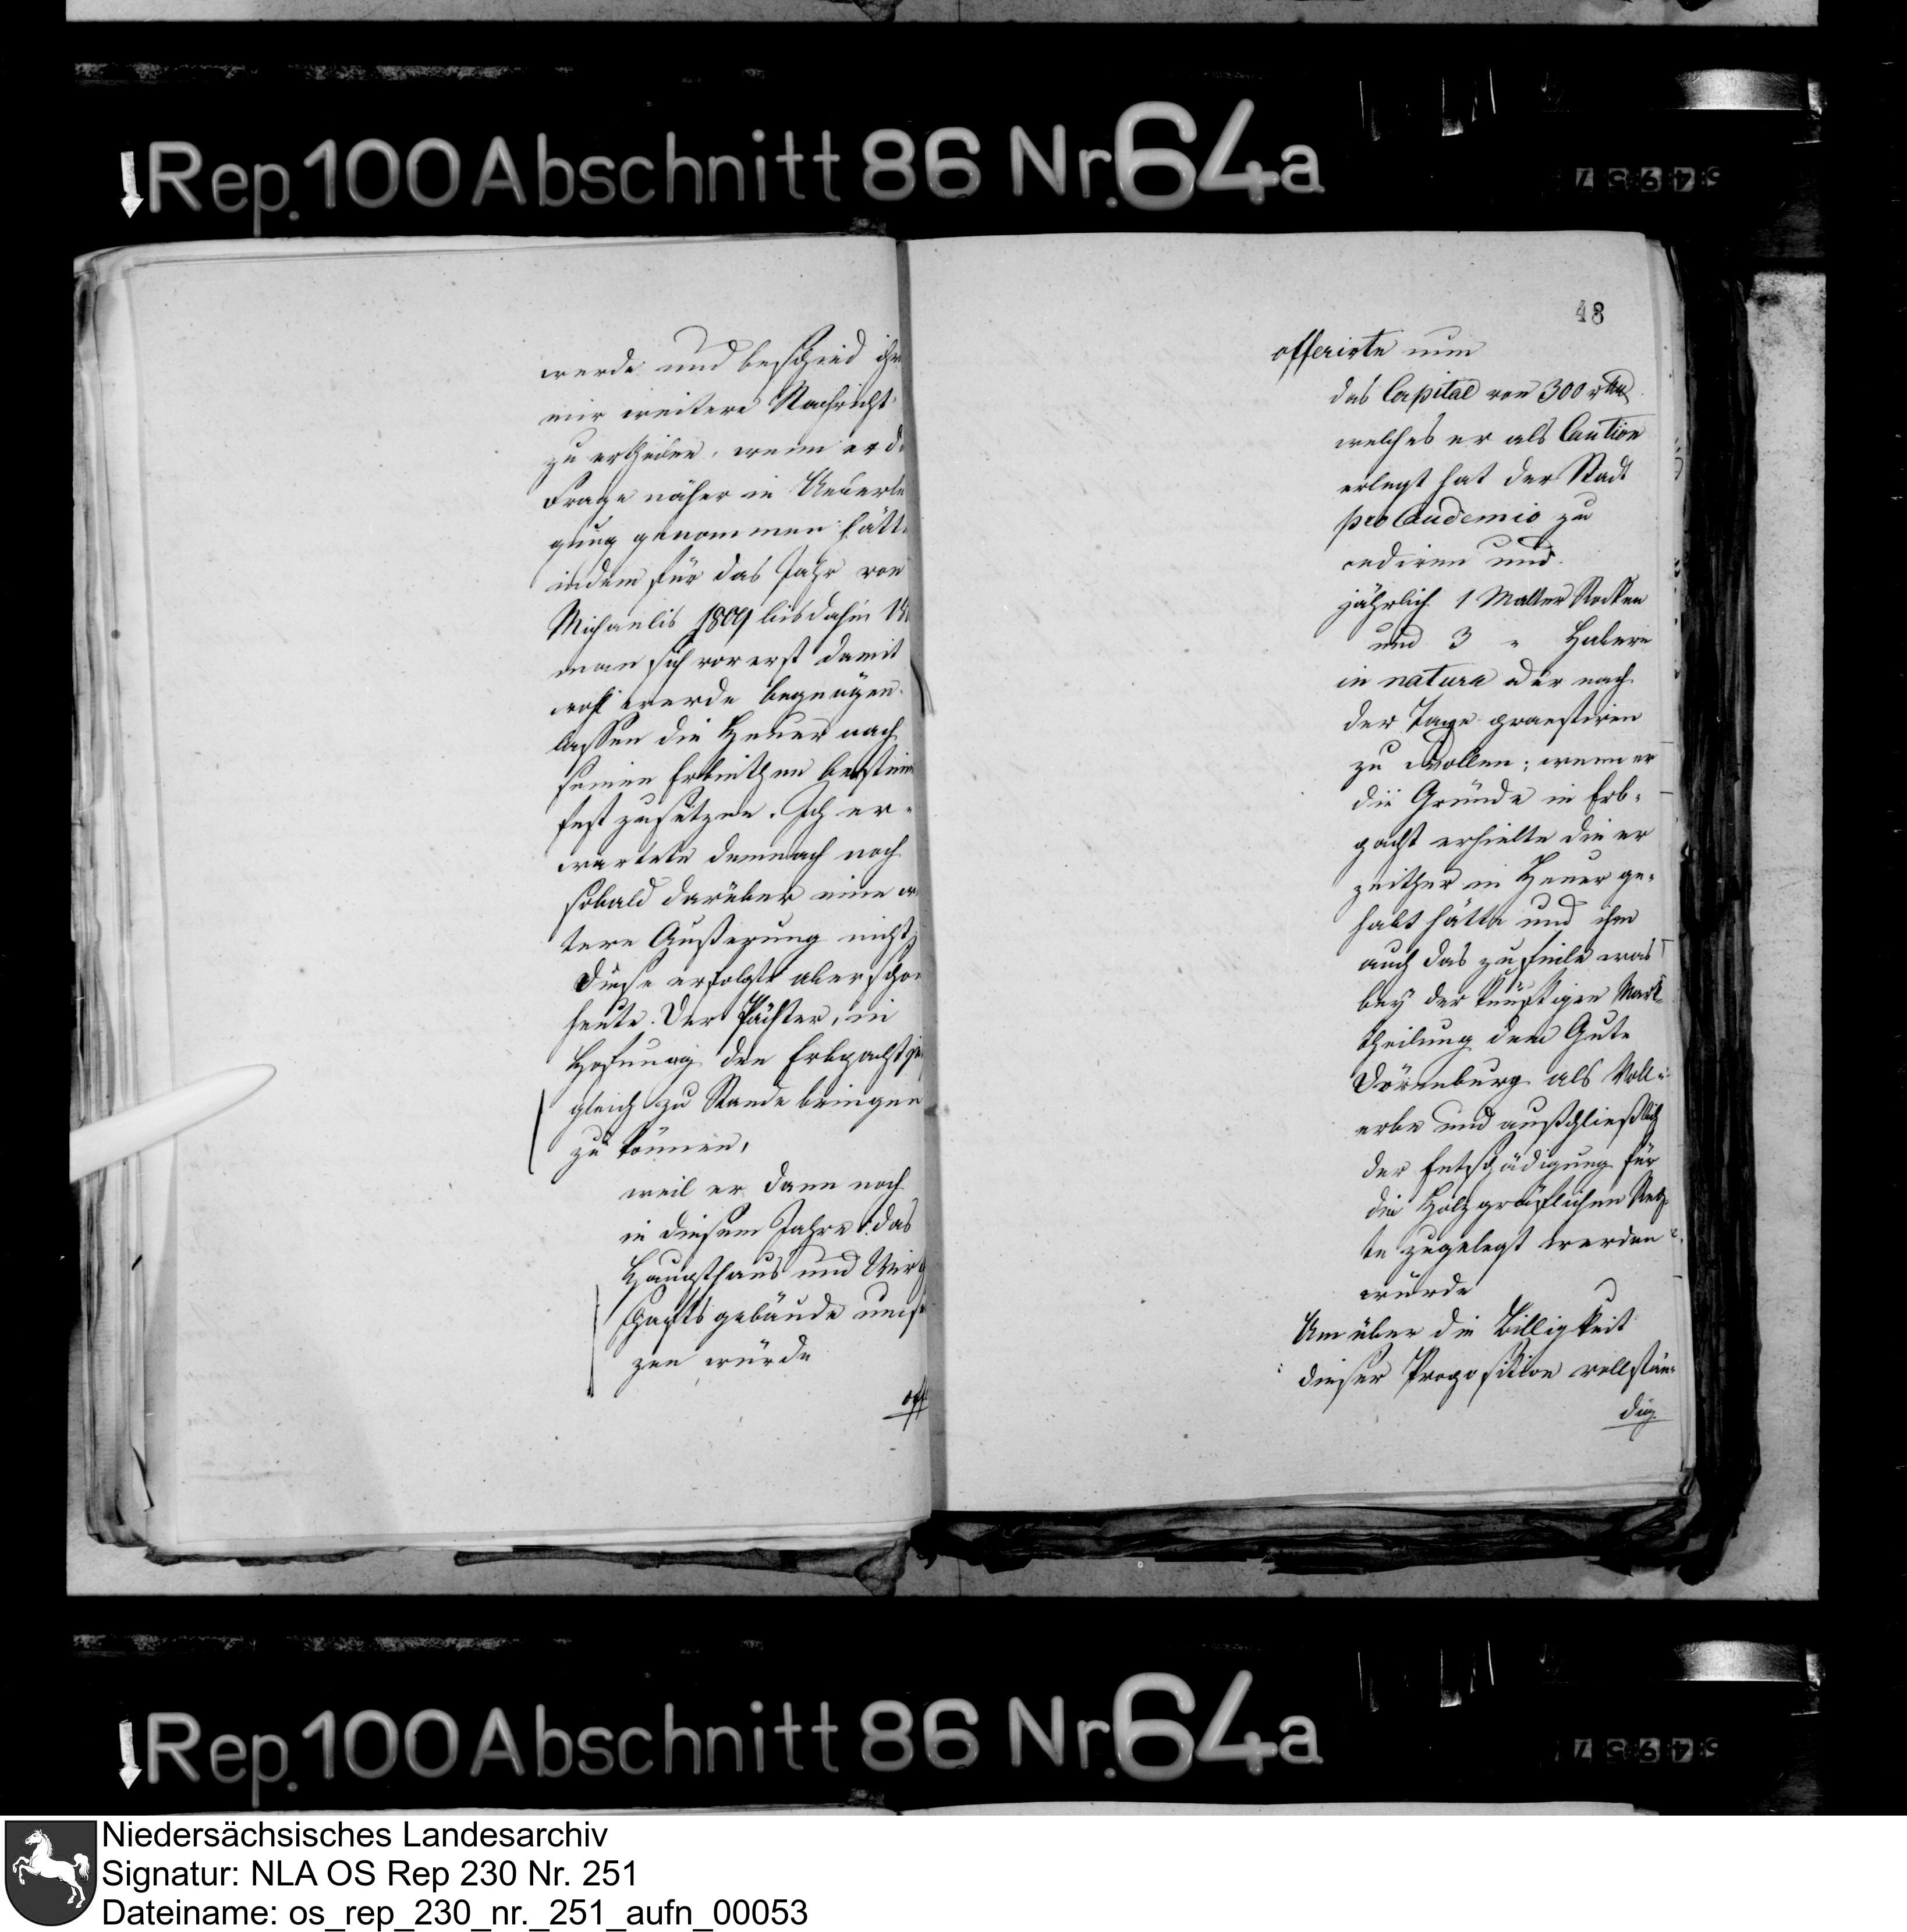 Rep. 100 Abschnitt 86 Nr. 64a
werde und beschied ihn
mir weitere Nachricht
zu ertheilen, wenn er d
Frage näher in Ueberle
gung genommen hätt
indem für das Jahr von
Michaelis 1809 bis dahin 18
man sich vorerst damit
wohl werde begnügen
lassen die Heuer nach
seinen Erbiethen bestim
fest zusetzen. Ich er-
wartete demnach noch
sobald darüber eine
tere Äußerung nicht,
Diese erfolgte aber schon
heute. Der Pächter, in
Hofnung den Erbpacht
gleich zu Stande bringen
zu können,
weil er dann noch
in diesem Jahre das
Haupthaus und Wirth
schafts gebäude
zen würde
off
48
offerirte nun
das Capital von 300 rthlr
welches er als Caution
erlegt hat der Stadt
pro Laudemio zu
cediren und
jährlich 1 Malter Rocken
und 3 " Habern
in natura oder nach
der Taxe praestiren
zu wollen; wenn er
die Gründe in Erb-
pacht erhielte die er
zeither in Heuer ge-
habt hätte und ihm
auch das zufiele was
bey der künftigen Mark-
theilung dem Gute
Dörenburg als Voll-
erbe und außschließlich
der Entschädigung für
die Holzgräflichen Rech-
te zugelegt werden
würde
Um über die Billigkeit
dieser Proposition vollstän-
dig
Rep. 100 Abschnitt 86 Nr. 64a
Niedersächsisches Landesarchiv
Signatur: NLA OS Rep 230 Nr. 251
Dateiname: os_rep_230_nr._251_aufn_00053